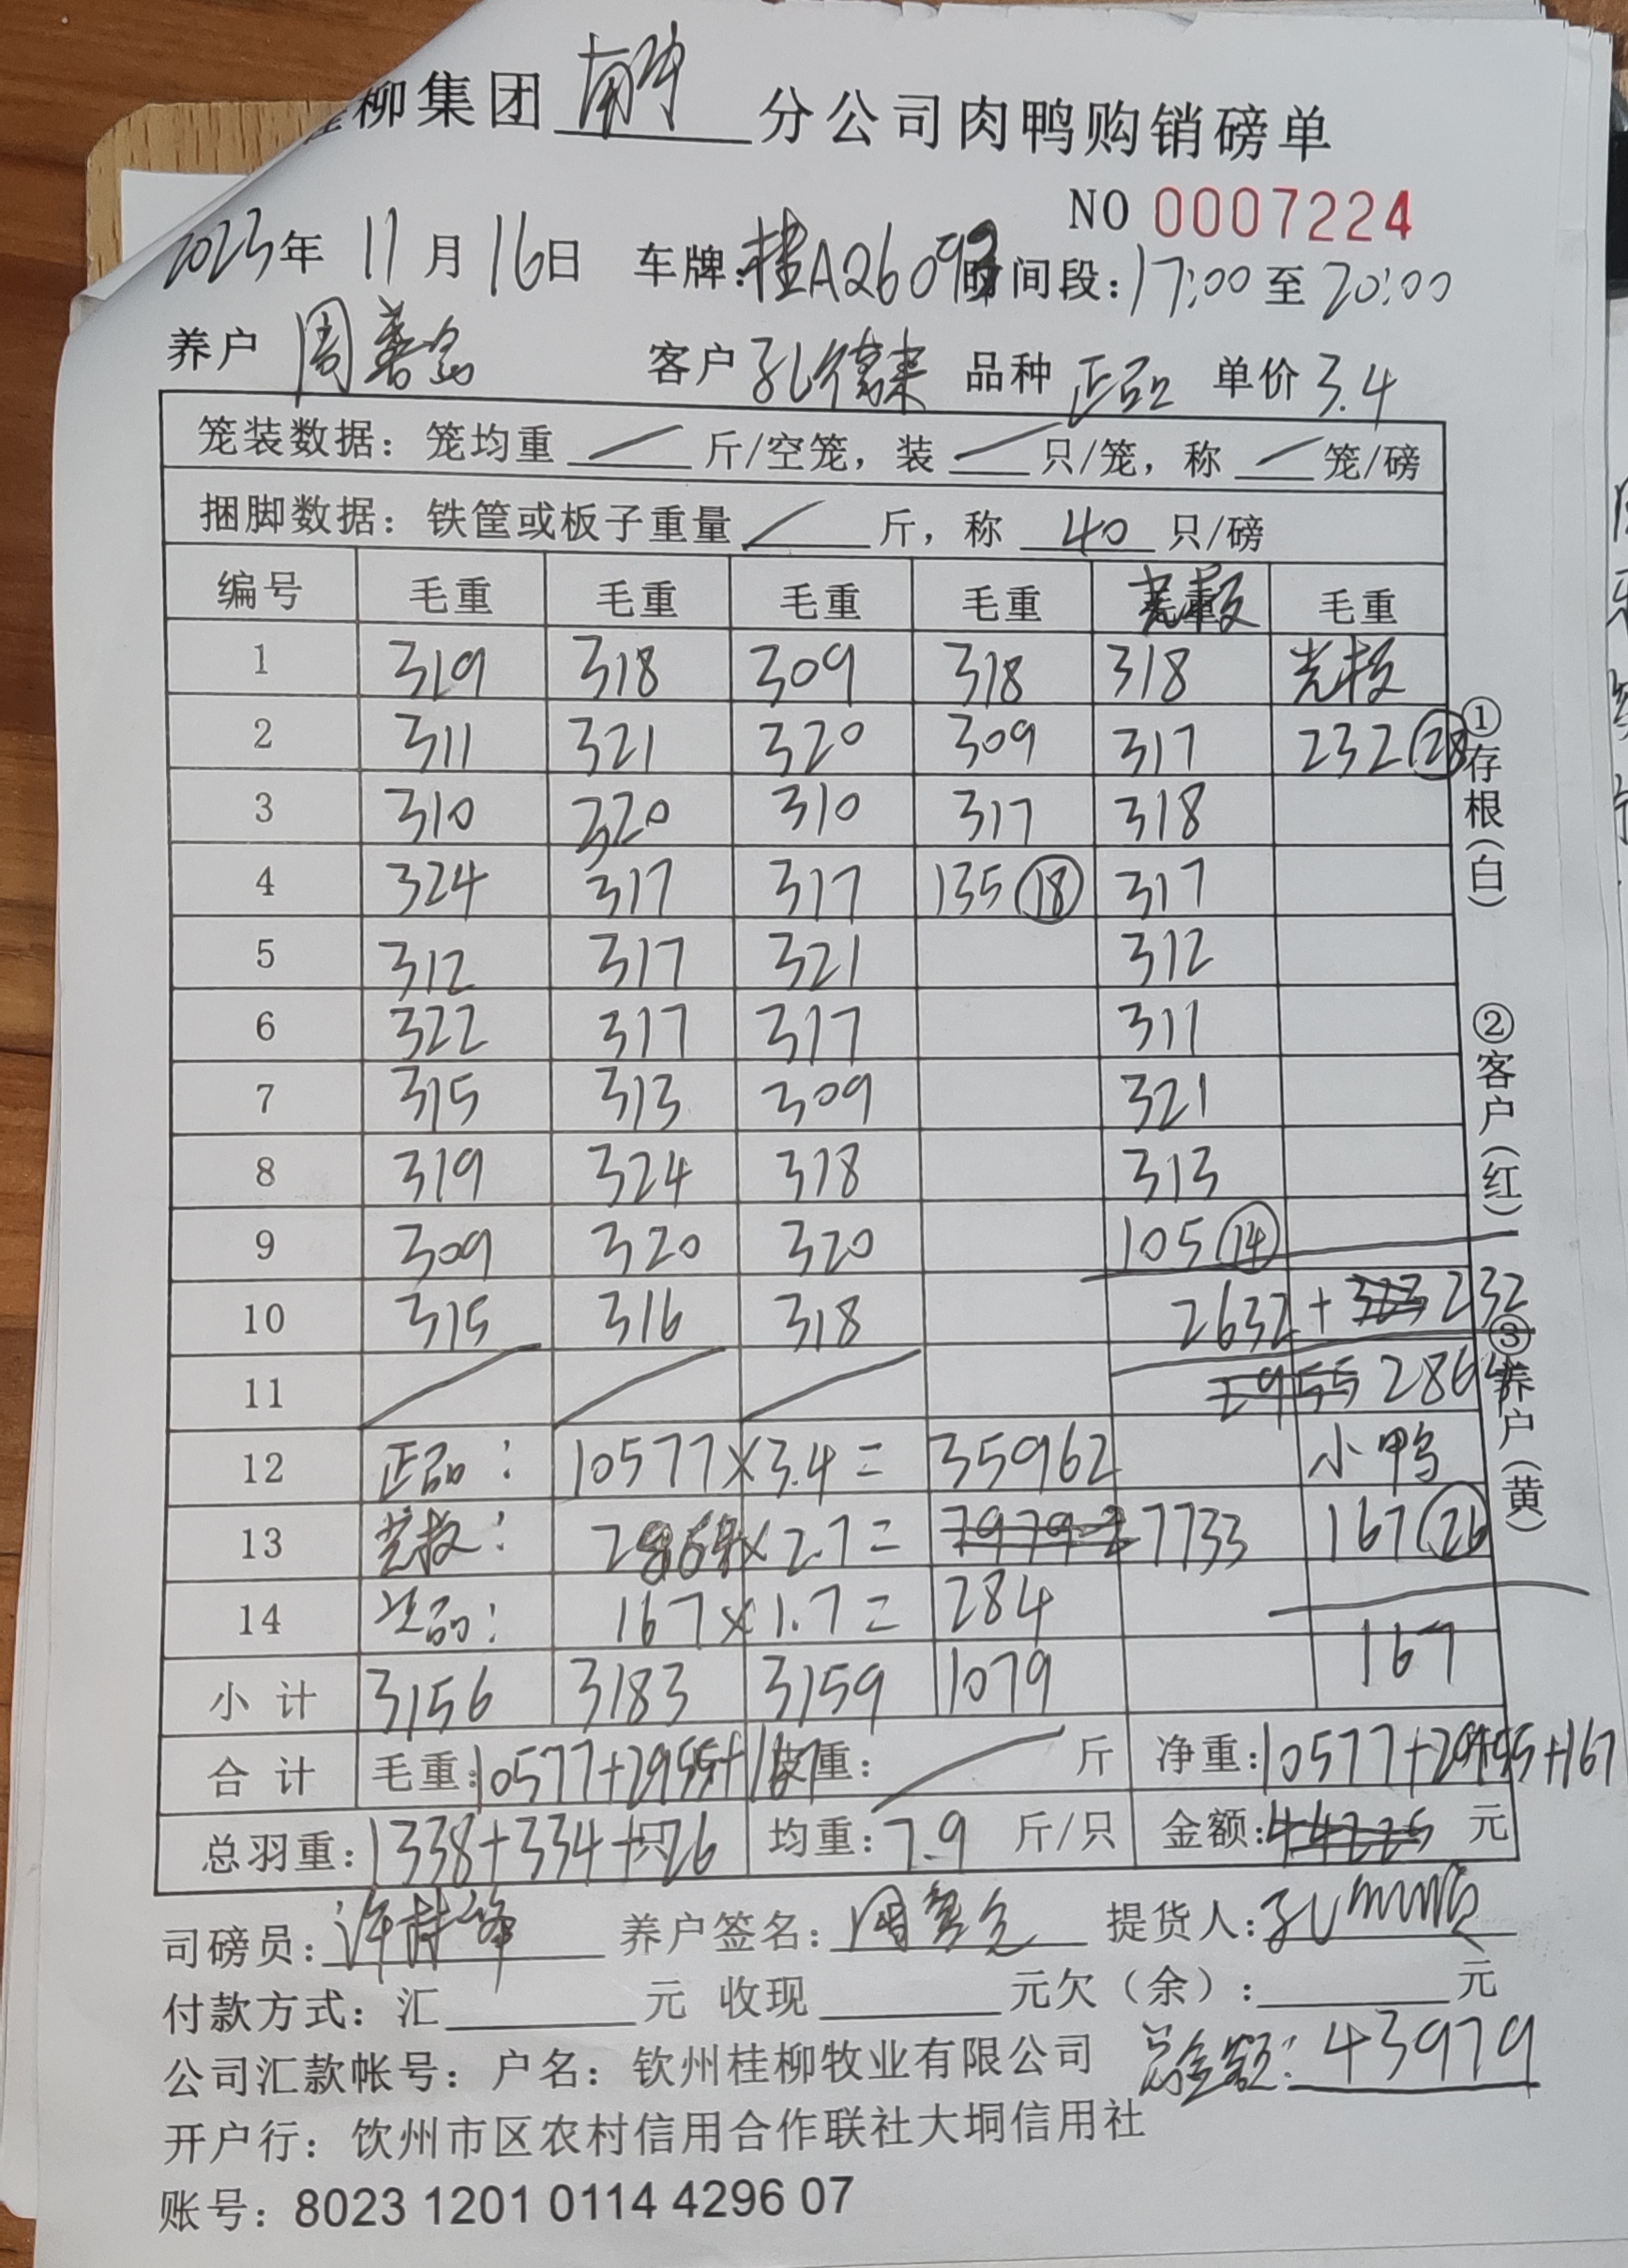 柳集团 南宁 分公司肉鸭购销磅单
NO 0007224
2023年 11月 16日 车牌:桂A2609 时间段:17:00 至 20:00
养户 周善 客户 孔德来 品种 正品 单价 3.4
笼装数据: 笼均重 / 斤/空笼, 装 / 只/笼, 称 / 笼/磅
捆脚数据: 铁筐或板子重量 / 斤, 称 40 只/磅
编号 毛重 毛重 毛重 毛重 光板 毛重
1 319 318 309 318 318 光板
2 311 321 320 309 317 232 (28)
3 310 320 310 317 318
4 324 317 317 135 (18) 317
5 312 317 321 312
6 322 317 317 311
7 315 313 309 321
8 319 324 318 313
9 309 320 320 105 (14)
10 315 316 318 2632 + 323 232
11 / / / 2955 2864
12 正品: 10577 × 3.4 = 35962 小鸭
13 光板: 2864 × 2.7 = 7979 7733 167 (26)
14 次品: 167 × 1.7 = 284
小计 3156 3183 3159 1079 167
合计 毛重:10577+2955+167 皮重: / 斤 净重:10577+2955+167
总羽重:1338+334+26 只 均重:7.9 斤/只 金额:44225 元
司磅员: 养户签名: 周善 提货人: 孔
付款方式: 汇 元 收现 元欠(余): 元
公司汇款帐号: 户名: 钦州桂柳牧业有限公司 总金额: 43979
开户行: 饮州市区农村信用合作联社大垌信用社
账号: 8023 1201 0114 4296 07
①存根(白)
②客户(红)
③养户(黄)